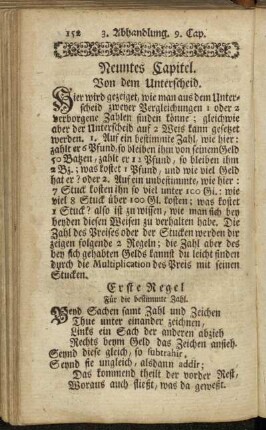 152 3. Abhandlung. 9. Cap.
Neuntes Capitel.
Von dem Unterscheid.
Hier wird gezeiget, wie man aus dem Unter-
scheid zweyer Vergleichungen 1 oder 2
verborgene Zahlen finden könne: gleichwie
aber der Unterscheid auf 2 Weis kann gesetzt
werden. 1. Auf ein bestimmte Zahl, wie hier:
zahlt er 6 Pfund, so bleiben ihm von seinem Geld
50 Batzen, zahlt er 11 Pfund, so bleiben ihm
2 Bz.; was kostet 1 Pfund, und wie viel Geld
hat er? oder 2. Auf ein unbestimmte, wie hier:
7 Stuck kosten ihn so viel unter 100 Gl.: wie
viel 8 Stuck über 100 Gl. kosten; was kostet
1 Stuck? also ist zu wissen, wie man sich bey
beyden diesen Weisen zu verhalten habe. Die
Zahl des Preises oder der Stucken werden dir
zeigen folgende 2 Regeln; die Zahl aber des
bey sich gehabten Gelds kannst du leicht finden
durch die Multiplication des Preis mit seinen
Stucken.
Erste Regel
Für die bestimmte Zahl.
Beyd Sachen samt Zahl und Zeichen
Thue unter einander zeichnen,
Links ein Sach der anderen abzieh
Rechts beym Geld das Zeichen ansieh.
Seynd diese gleich, so subtrahir,
Seynd sie ungleich, alsdann addir;
Das kommend theilt der vorder Rest,
Woraus auch fließt, was da gewest.